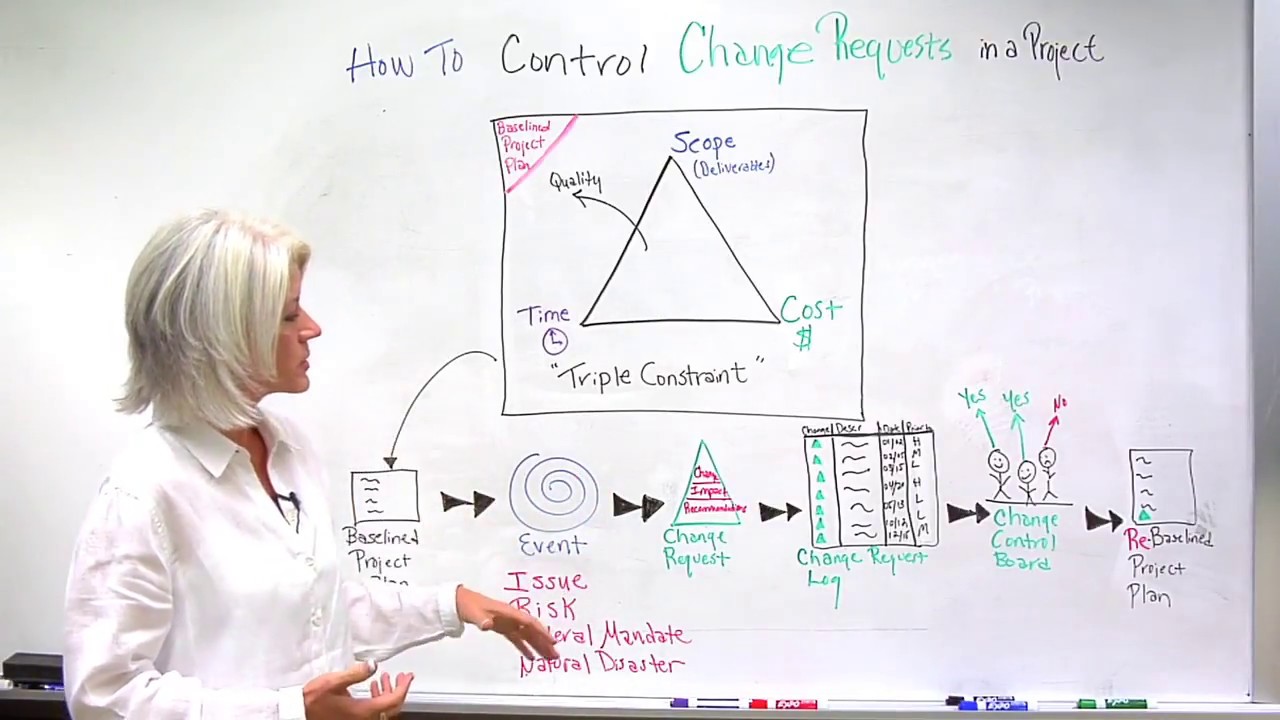 How To Control Change Requests in a Project
Baselined
Project
Plan
Scope
(Deliverables)
Quality
Time
Cost
$
"Triple Constraint"
Yes Yes No
Change Descr Date Priority
01/02 H
02/05 M
03/15 L
04/20 H
05/13 L
10/13 L
12/15 M
Change
Impact
Recommendations
Baselined
Project
Event
Issue
Risk
Mandate
Natural Disaster
Change
Request
Change Request
Log
Change
Control
Board
Re-Baselined
Project
Plan
EXPO
EXPO